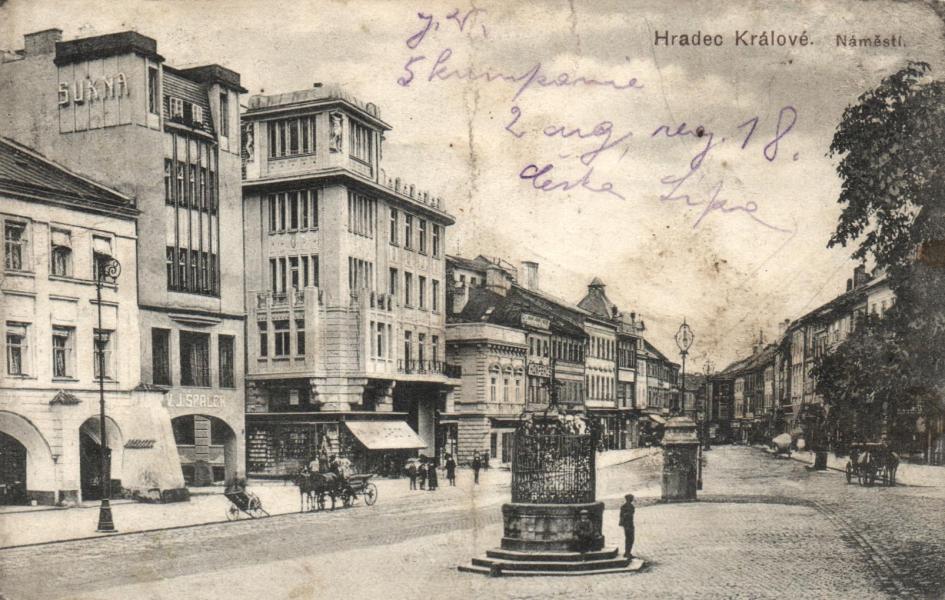 Hradec Králové. Náměstí.
J. V.
5 kumpanie
2 arg. reg. 18.
Česka Lípa
SUKNA
V. J. ŠPALEK